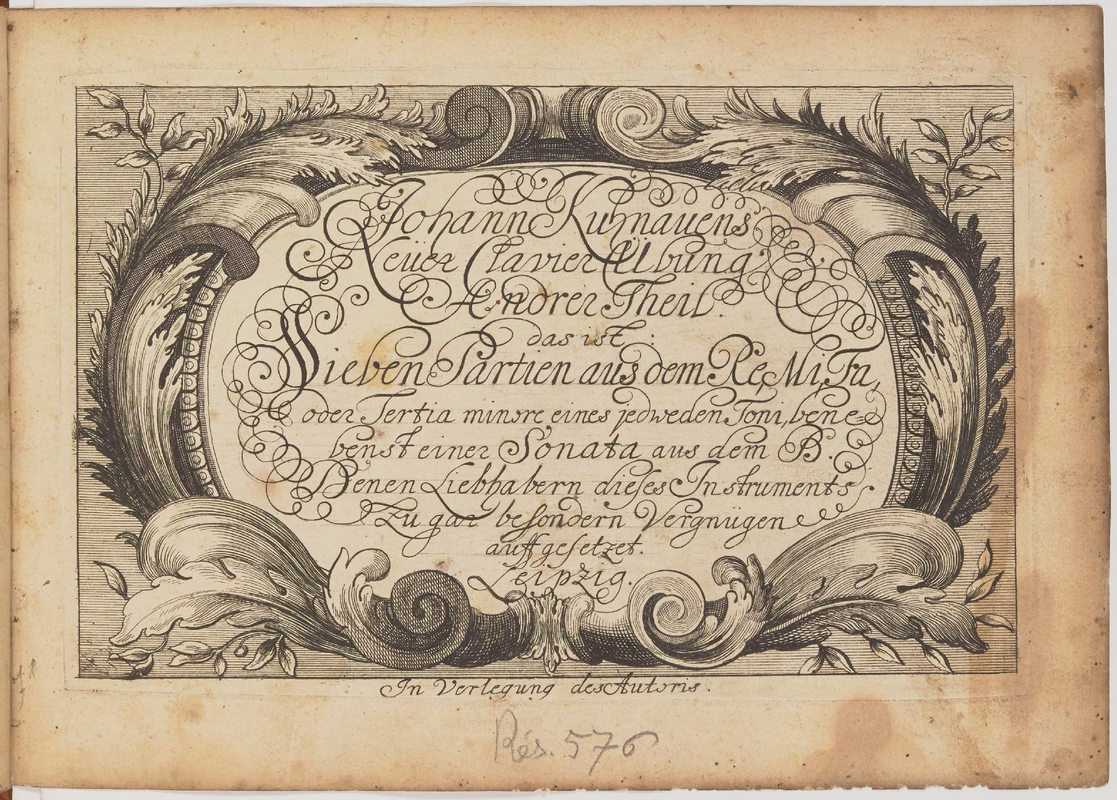 Johann Kuhnauens
Neuer Clavier Übung
Andrer Theil.
das ist:
Sieben Partien aus dem Re, Mi, Fa,
oder Tertia minore eines jedweden Toni, bene=
benst einer Sonata aus dem B.
Denen Liebhabern dieses Instruments
zu gar besondern Vergnügen
auffgesetzet.
Leipzig.
In Verlegung des Autoris.
Rés. 576